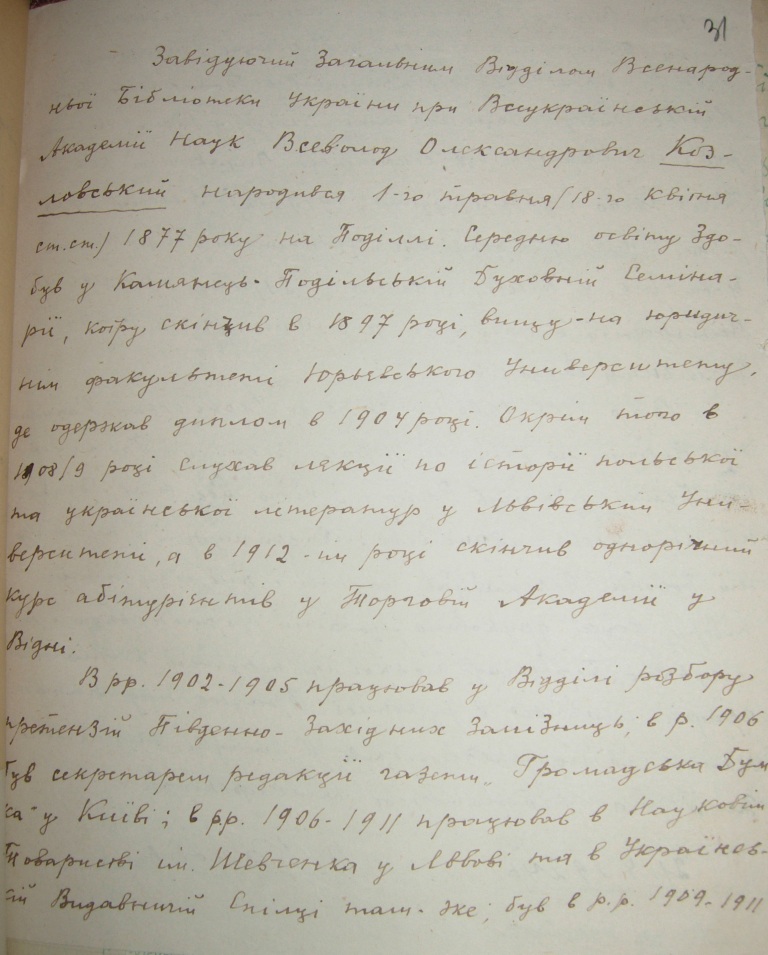 31
Завідуючий Загальним Відділом Всенарод-
ньої Бібліотеки України при Всеукраїнській
Академії Наук Всеволод Олександрович Коз-
ловський народився 1-го травня (18-го квітня
ст.ст.) 1877 року на Поділлі. Середню освіту здо-
був у Камянець-Подільській Духовній Семіна-
рії, котру скінчив в 1897 році, вищу - на юридич-
нім факультеті Юрьевського Университету,
де одержав диплом в 1904 році. Окрім того в
1908/9 році слухав лекції по історії польської
та української літератур у Львівським Уни-
верситеті, а в 1912-им році скінчив однорічний
курс абітурієнтів у Торговій Академії у
Відні.
В рр. 1902-1905 працював у Відділі розбору
претензій Південно-Західних Залізниць; в р. 1906
був секретарем редакції газети „Громадська Дум
ка" у Київі; в рр. 1906-1911 працював в Науковім
Товаристві ім. Шевченка у Львові та в Українсь-
кій Видавничій Спілці там-же; був в р.р. 1909-1911